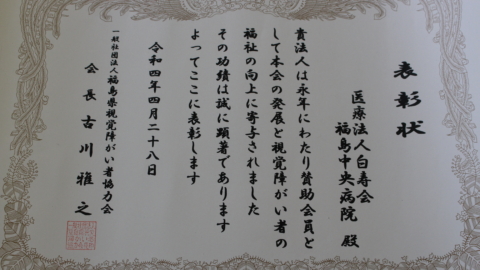 表彰状
医療法人白寿会
福島中央病院 殿
貴法人は永年にわたり賛助会員と
して本会の発展と視覚障がい者の
福祉の向上に寄与されました
その功績は誠に顕著であります
よってここに表彰します
令和四年四月二十八日
一般社団法人福島県視覚障がい者協力会
会長 古川雅之